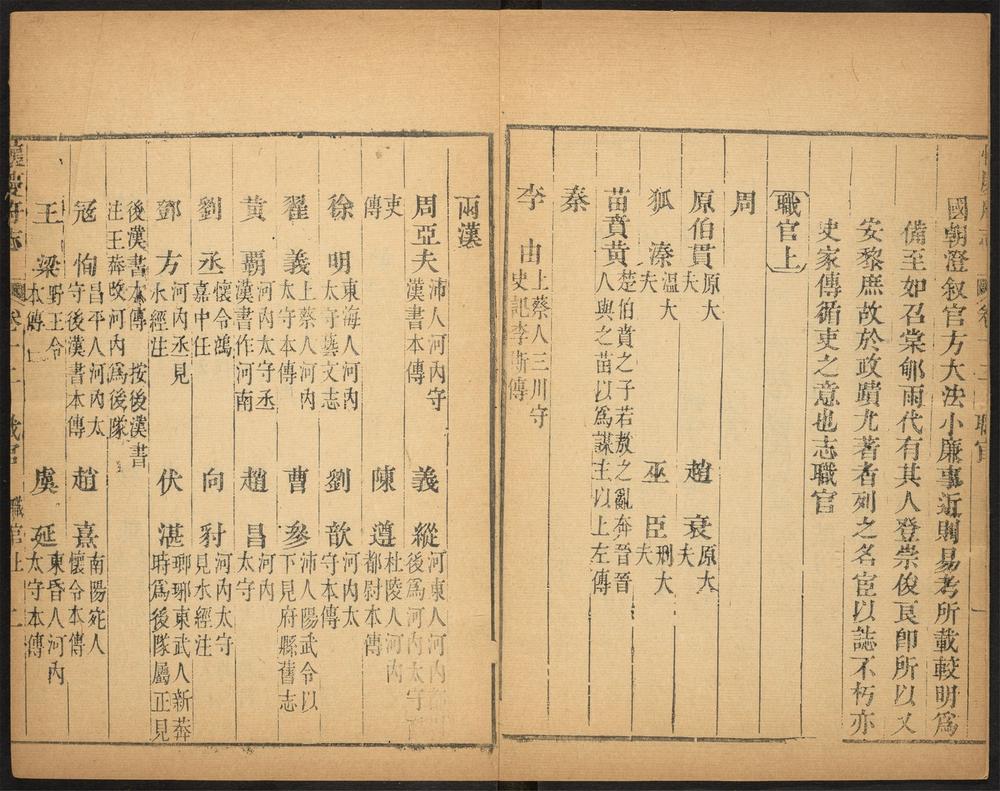 國朝澄叙官方大法小廉事近則易考所載較明爲
備至如召棠郇雨代有其人登崇俊良卽所以乂
安黎庶故於政蹟尤著者列之名宦以誌不朽亦
史家傳循吏之意也志職官
職官上
周
原伯貫原大夫 趙衰原大夫
狐溱溫大夫 巫臣刑大夫
苗賁黃楚伯賁之子若敖之亂奔晉晉人與之苗以爲謀主以上左傳
秦
李由上蔡人三川守史記李斯傳
兩漢
周亞夫沛人河內守漢書本傳 義縱河東人河內都尉後爲河內太守
吏傳 陳遵杜陵人河內都尉本傳
徐明東海人河內太守藝文志 劉歆河內太守本傳
翟義上蔡人河內太守本傳 曹參沛人陽武令以下見府縣舊志
黃霸河內太守丞漢書作河南 趙昌河內太守
劉丞懷令鴻嘉中任 向豺河內太守見水經注
鄧方河內丞見水經注 伏湛瑯琊東武人新莽時爲後隊屬正見
後漢書本傳 按後漢書注王莽改河內爲後隊
寇恂昌平人河內太守後漢書本傳 趙熹南陽宛人懷令本傳
王梁野王令本傳 虞延東昏人河內太守本傳
懷慶府志 卷十二 職官 職官上 二